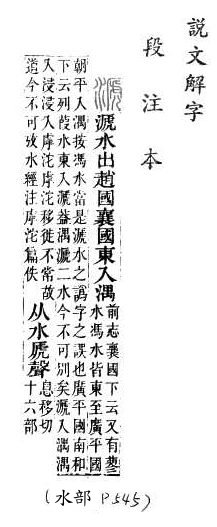 說文解字
段注本
㴲水出趙國襄國東入湡
前志襄國下云又有蓼
水馮水皆東至廣平國
朝平入湡按馮水當是㴲水之譌字之誤也廣平國南和
下云列葭水東入㴲葢湡㴲二水今不可別矣㴲入湡湡
入浸入虖沱虖沱移徙不常故
道今不可攷水經注虖沱篇佚
从水虒聲
息移切
十六部
(水部 P545)